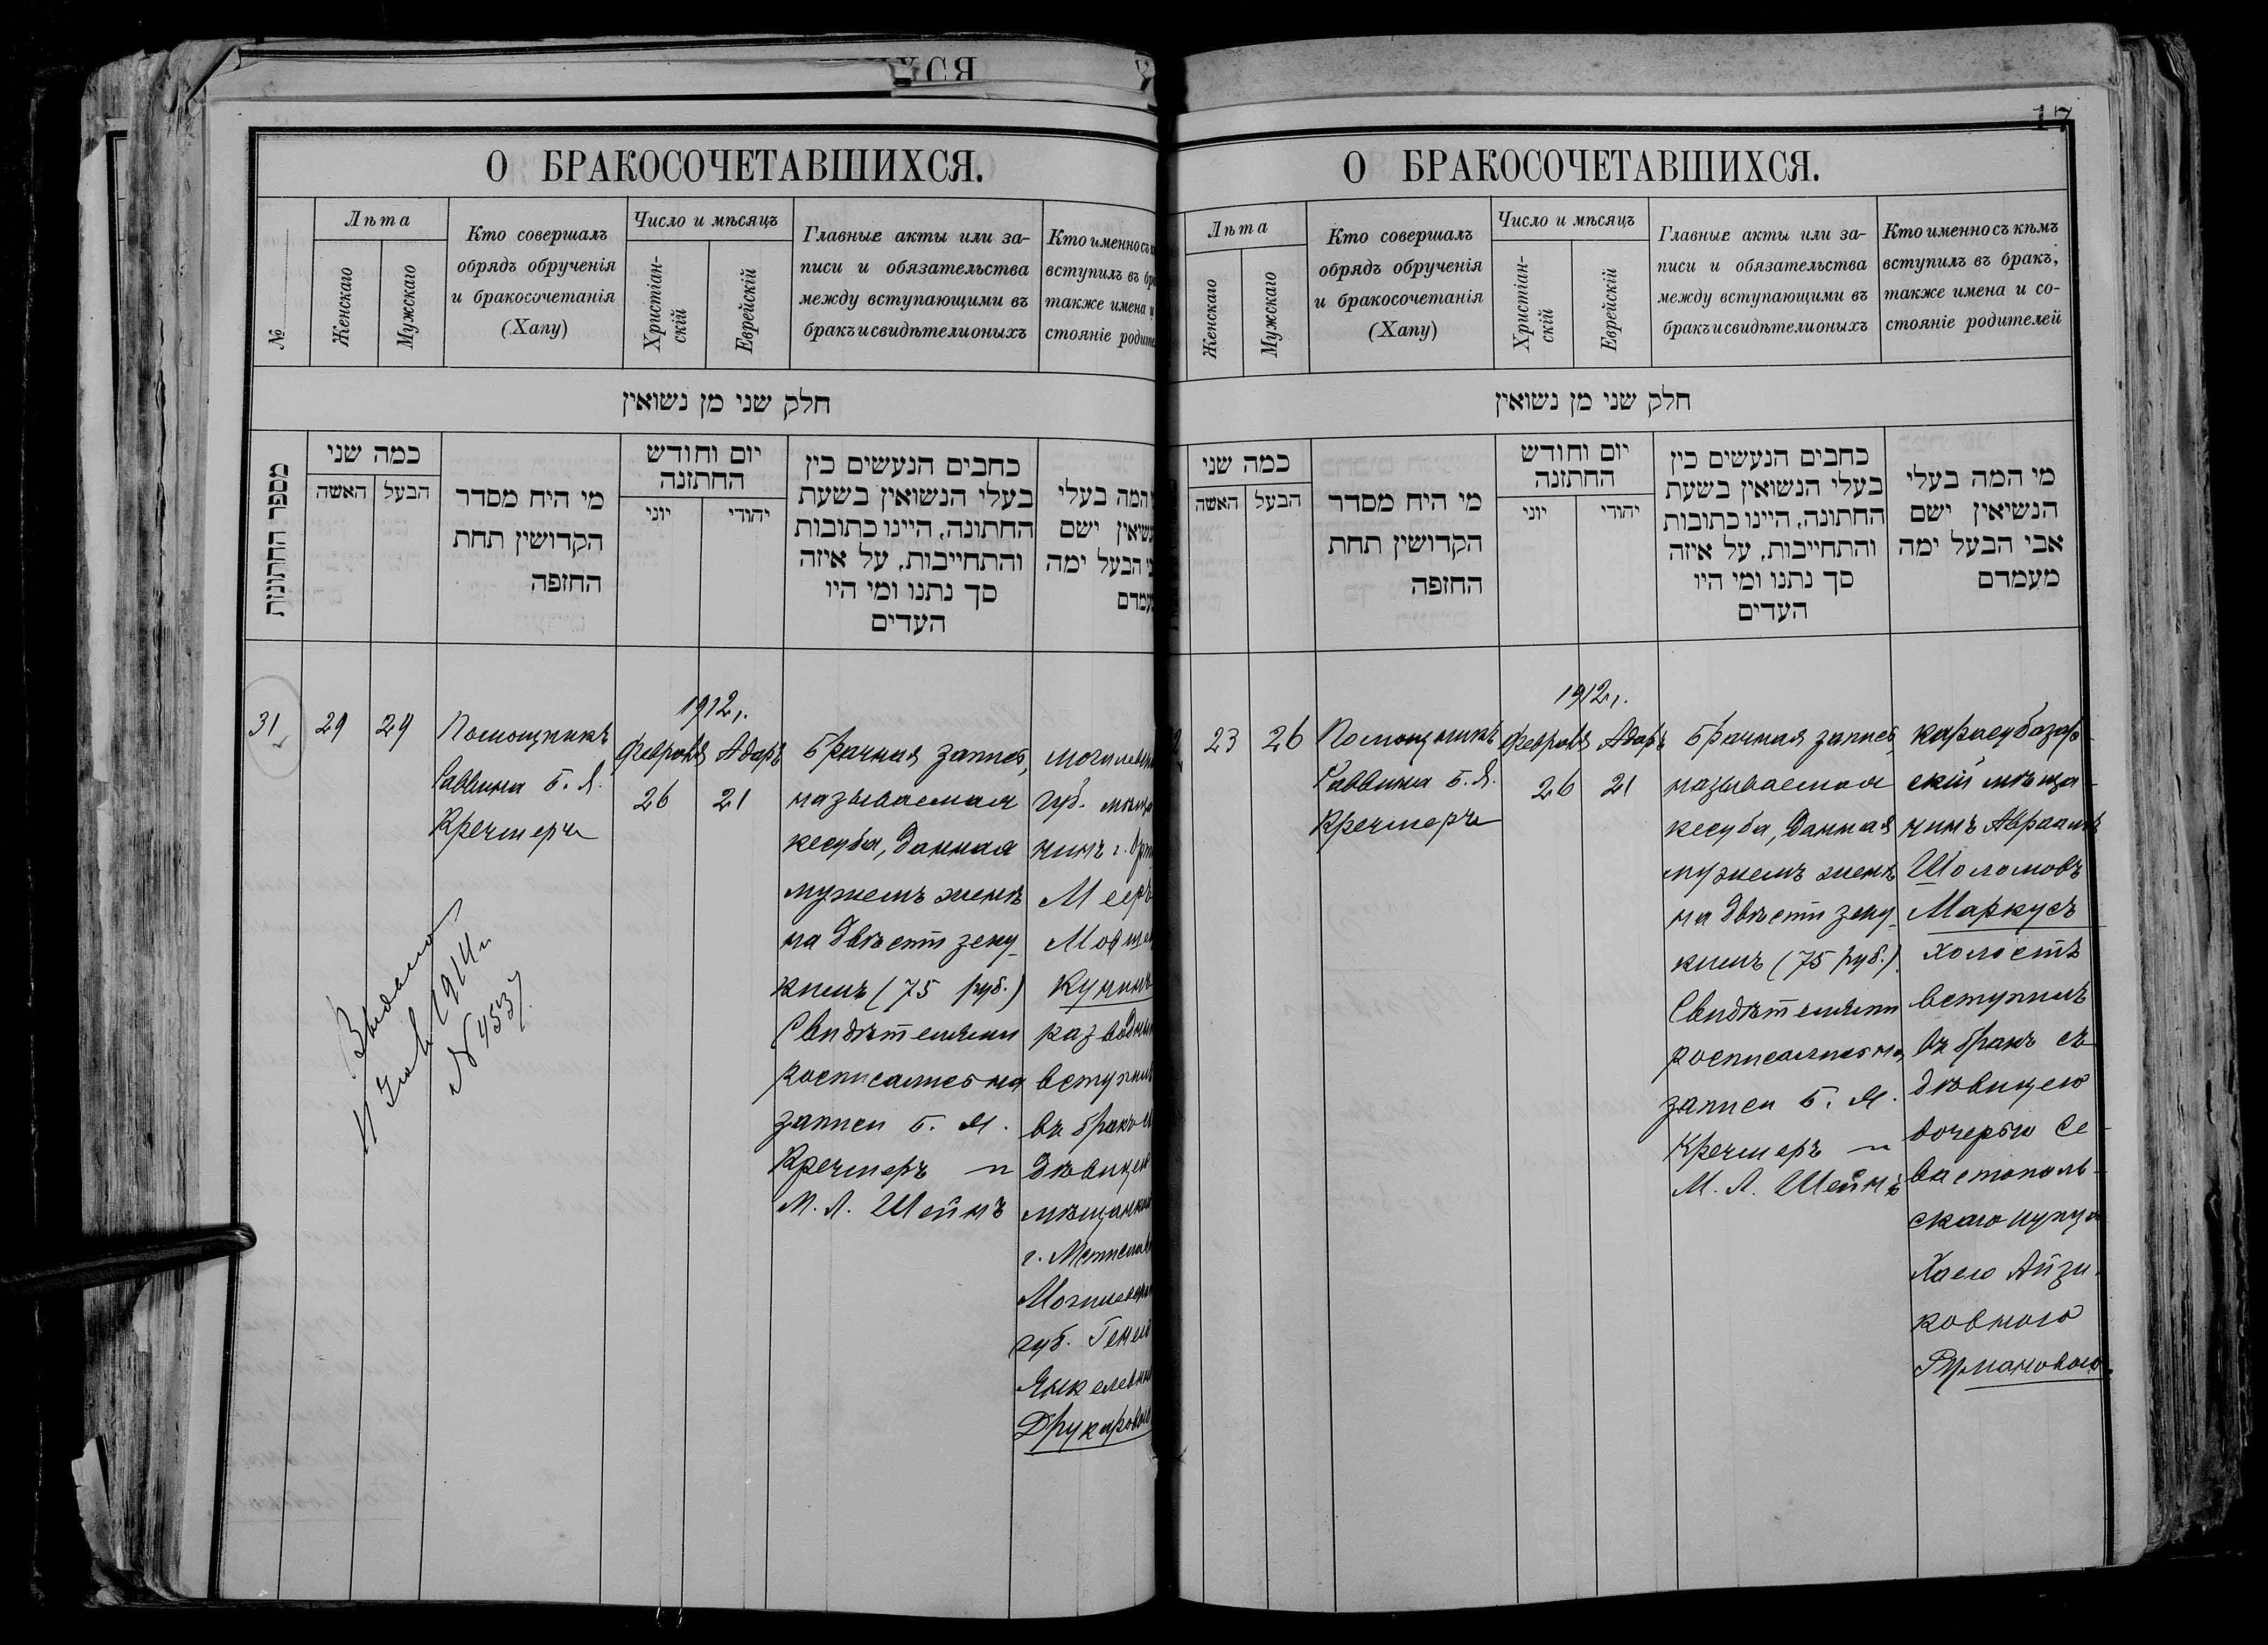 17
О БРАКОСОЧЕТАВШИХСЯ.
№
Лѣта
Женскаго
Мужскаго
Кто совершалъ
обрядъ обрученія
и бракосочетанія
(Хапу)
Число и мѣсяцъ
Христіан-
скій
Еврейскій
Главные акты или за-
писи и обязательства
между вступающими въ
бракъ и свидѣтели оныхъ
Кто именно съ
вступилъ въ
также имена
стояніе
חלק שני מן נשואין
מספר החתונות
כמה שני
האשה
הבעל
מי היח מסדר
הקדושין תחת
החזפה
יום וחודש
החתזנה
יוני
יהודי
כחבים הנעשים כין
בעלי הנשואין בשעת
החתונה, היינו כתובות
והתחייבות, על איזה
סך נתנו ומי היו
העדים
המה בעלי
ישם
הבעל ימה
31
29
29
Помощникъ
Раввина Б. Я.
Кречмеръ
1912 г.
Февраля
26
Адаръ
21
Брачная запись,
называемая
кесуба, данная
мужемъ женѣ
на двѣсти зеку-
кимъ (75 руб.)
Свидѣтелями
росписались на
записи Б. Я.
Кречмеръ и
М. Л. Шейнъ
губ.
чинъ г.
Мееръ
Кунинъ
вступилъ
въ бракъ
дѣвицею
г.
губ.
Друкаровою
Выдано
1914 г.
№ 4537
О БРАКОСОЧЕТАВШИХСЯ.
Лѣта
Женскаго
Мужскаго
Кто совершалъ
обрядъ обрученія
и бракосочетанія
(Хапу)
Число и мѣсяцъ
Христіан-
скій
Еврейскій
Главные акты или за-
писи и обязательства
между вступающими въ
бракъ и свидѣтели оныхъ
Кто именно съ кѣмъ
вступилъ въ бракъ,
также имена и со-
стояніе родителей
חלק שני מן נשואין
כמה שני
האשה
הבעל
מי היח מסדר
הקדושין תחת
החזפה
יום וחודש
החתזנה
יוני
יהודי
כחבים הנעשים כין
בעלי הנשואין בשעת
החתונה, היינו כתובות
והתחייבות, על איזה
סך נתנו ומי היו
העדים
מי המה בעלי
הנשיאין ישם
אבי הבעל ימה
מעמדם
23
26
Помощникъ
Раввина Б. Я.
Кречмеръ
1912 г.
Февраля
26
Адаръ
21
Брачная запись,
называемая
кесуба, данная
мужемъ женѣ
на двѣсти зеку-
кимъ (75 руб.)
Свидѣтелями
росписались на
записи Б. Я.
Кречмеръ и
М. Л. Шейнъ
карасубазар-
скій мѣща-
нинъ Авраамъ
Шоломовъ
Маркусъ
холостъ
вступилъ
въ бракъ съ
дѣвицею
дочерью Се-
вастополь-
скаго купца
Хаею Айзи-
ковною
Гурмановою.